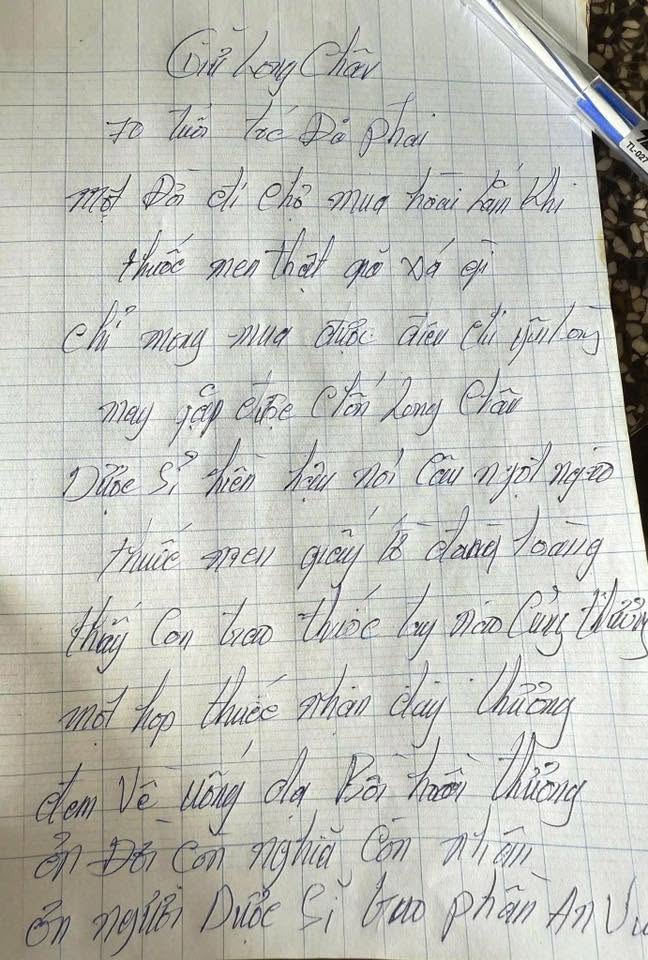 Gửi Long Châu
70 tuổi tóc Đã phai
một Đời đi chợ mua hoài hắn khi
thuốc men thật quá xá gì
chỉ mong mua được điều chi lòng
may gặp được chốn Long Châu
Dược Sỉ hiền hậu nói Câu ngọt ngào
thuốc men giấy tờ đàng hoàng
thấy Con trao thuốc tay nào Củng thương
một hợp thuốc nhận đầy thương
đem Về uống dạ Bồi hồi thương
ơn Đời Còn nghĩa Còn nhân
ơn người Dược Sĩ trao phần An Vu
TL-027